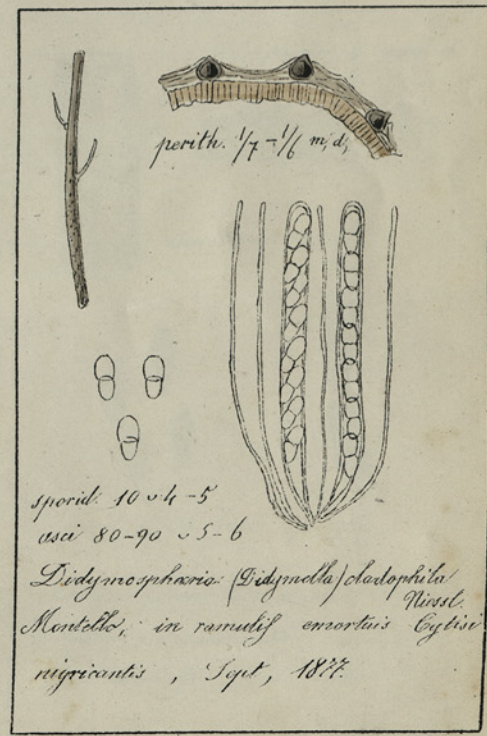 perith. 1/7 - 1/6 m, d,
sporid. 10 ᴗ 4 - 5
asci 80-90 ᴗ 5 - 6
Didymosphæria (Didymella) cladophila
Niessl.
Montello, in ramulis emortuis Cytisi
nigricantis, Sept, 1877.